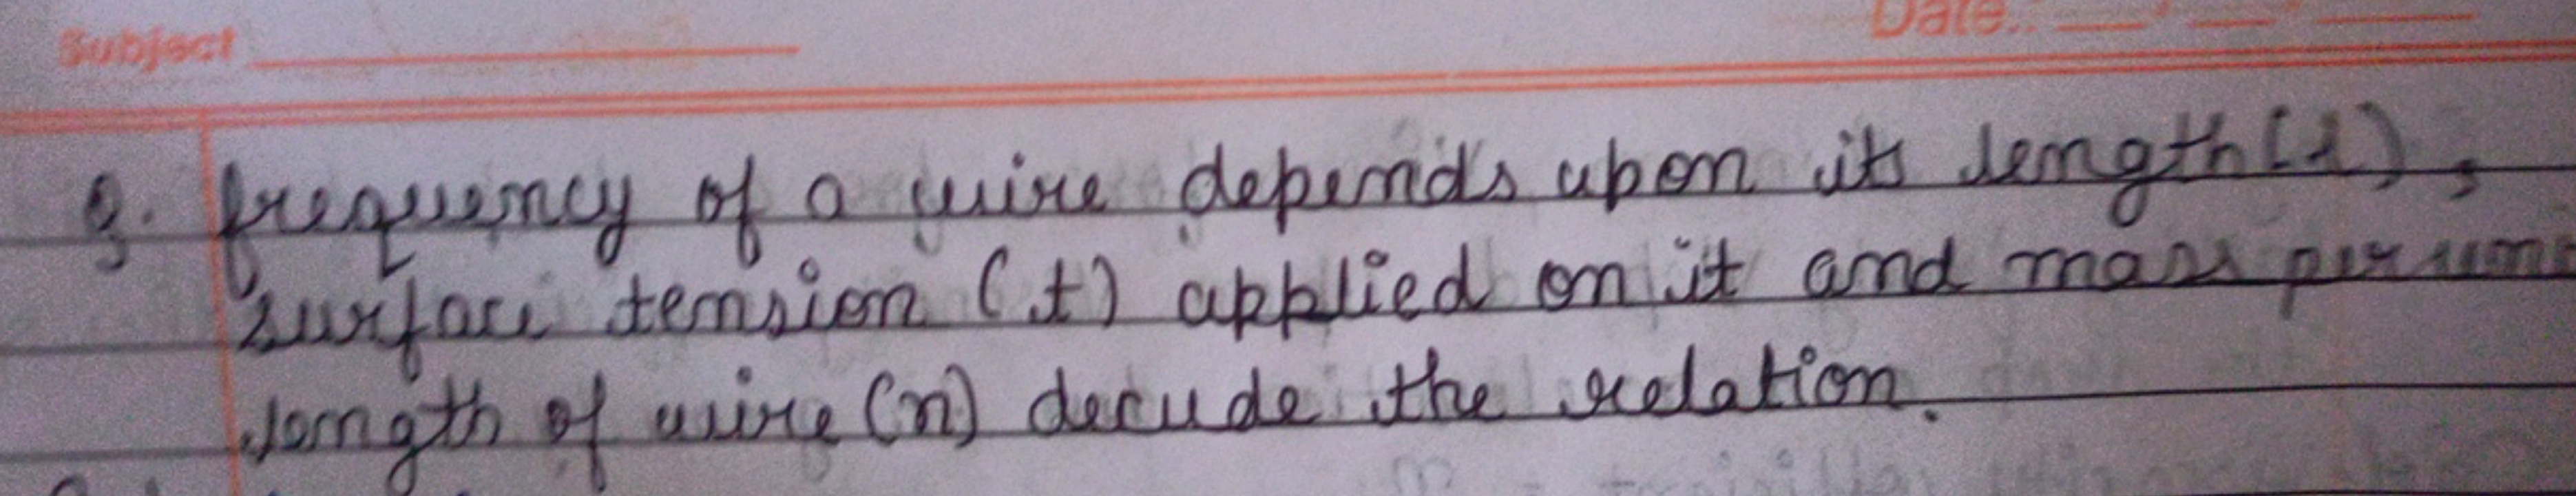 Subject
Date..
g. frequency of a wire depends upon its length (l),
surface tension (t) applied on it and mass per
length of wire (n) decude the relation.